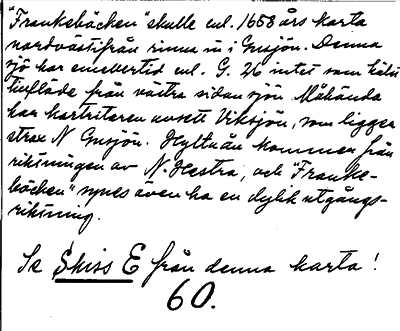 "Frankebäcken" skulle enl. 1658 års karta
nordvästifrån rinna in i Gusjön. Denna
sjö har emellertid enl. G. 26 intet som helst
tillflöde från västra sidan sjön. Måhända
har kartritaren avsett Viksjön, som ligger
strax N Gusjön. Hyltuån kommer från
riktningen av N. Hestra, och "Franke-
bäcken" synes även ha en dylik utgångs-
riktning.
Se Skiss E från denna karta!
60.